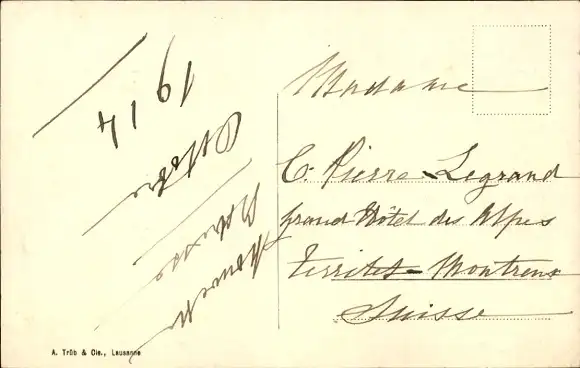 1914
Octobre
Madame
C. Pierre Legrand
Grand Hôtel des Alpes
Territet-Montreux
Suisse
A. Trüb & Cie., Lausanne